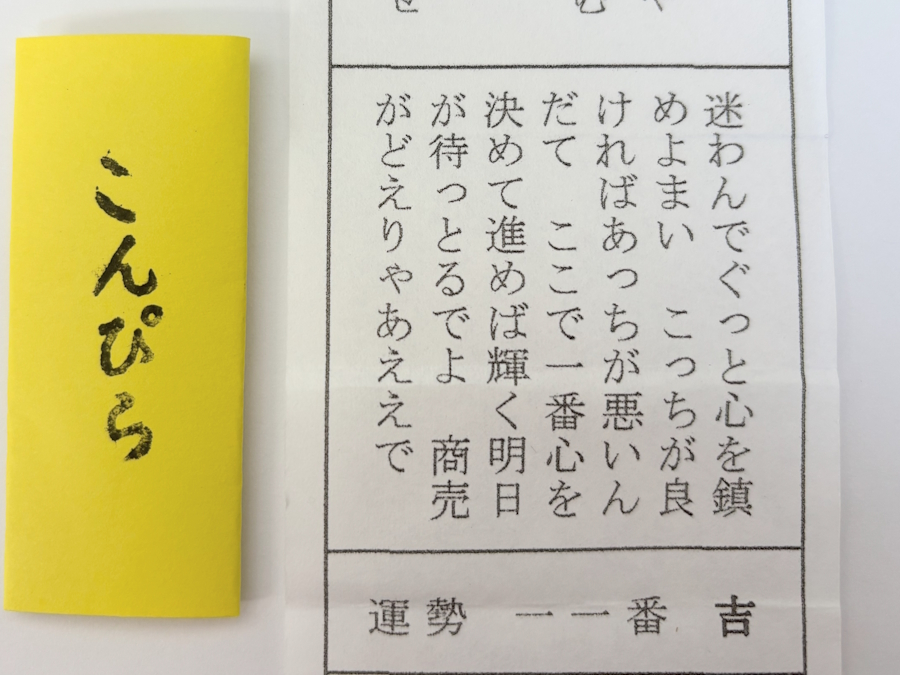 こんぴら
迷わんでぐっと心を鎮
めよまい　こっちが良
ければあっちが悪いん
だて　ここで一番心を
決めて進めば輝く明日
が待っとるでよ　商売
がどえりゃあええで
運勢　一一番　吉